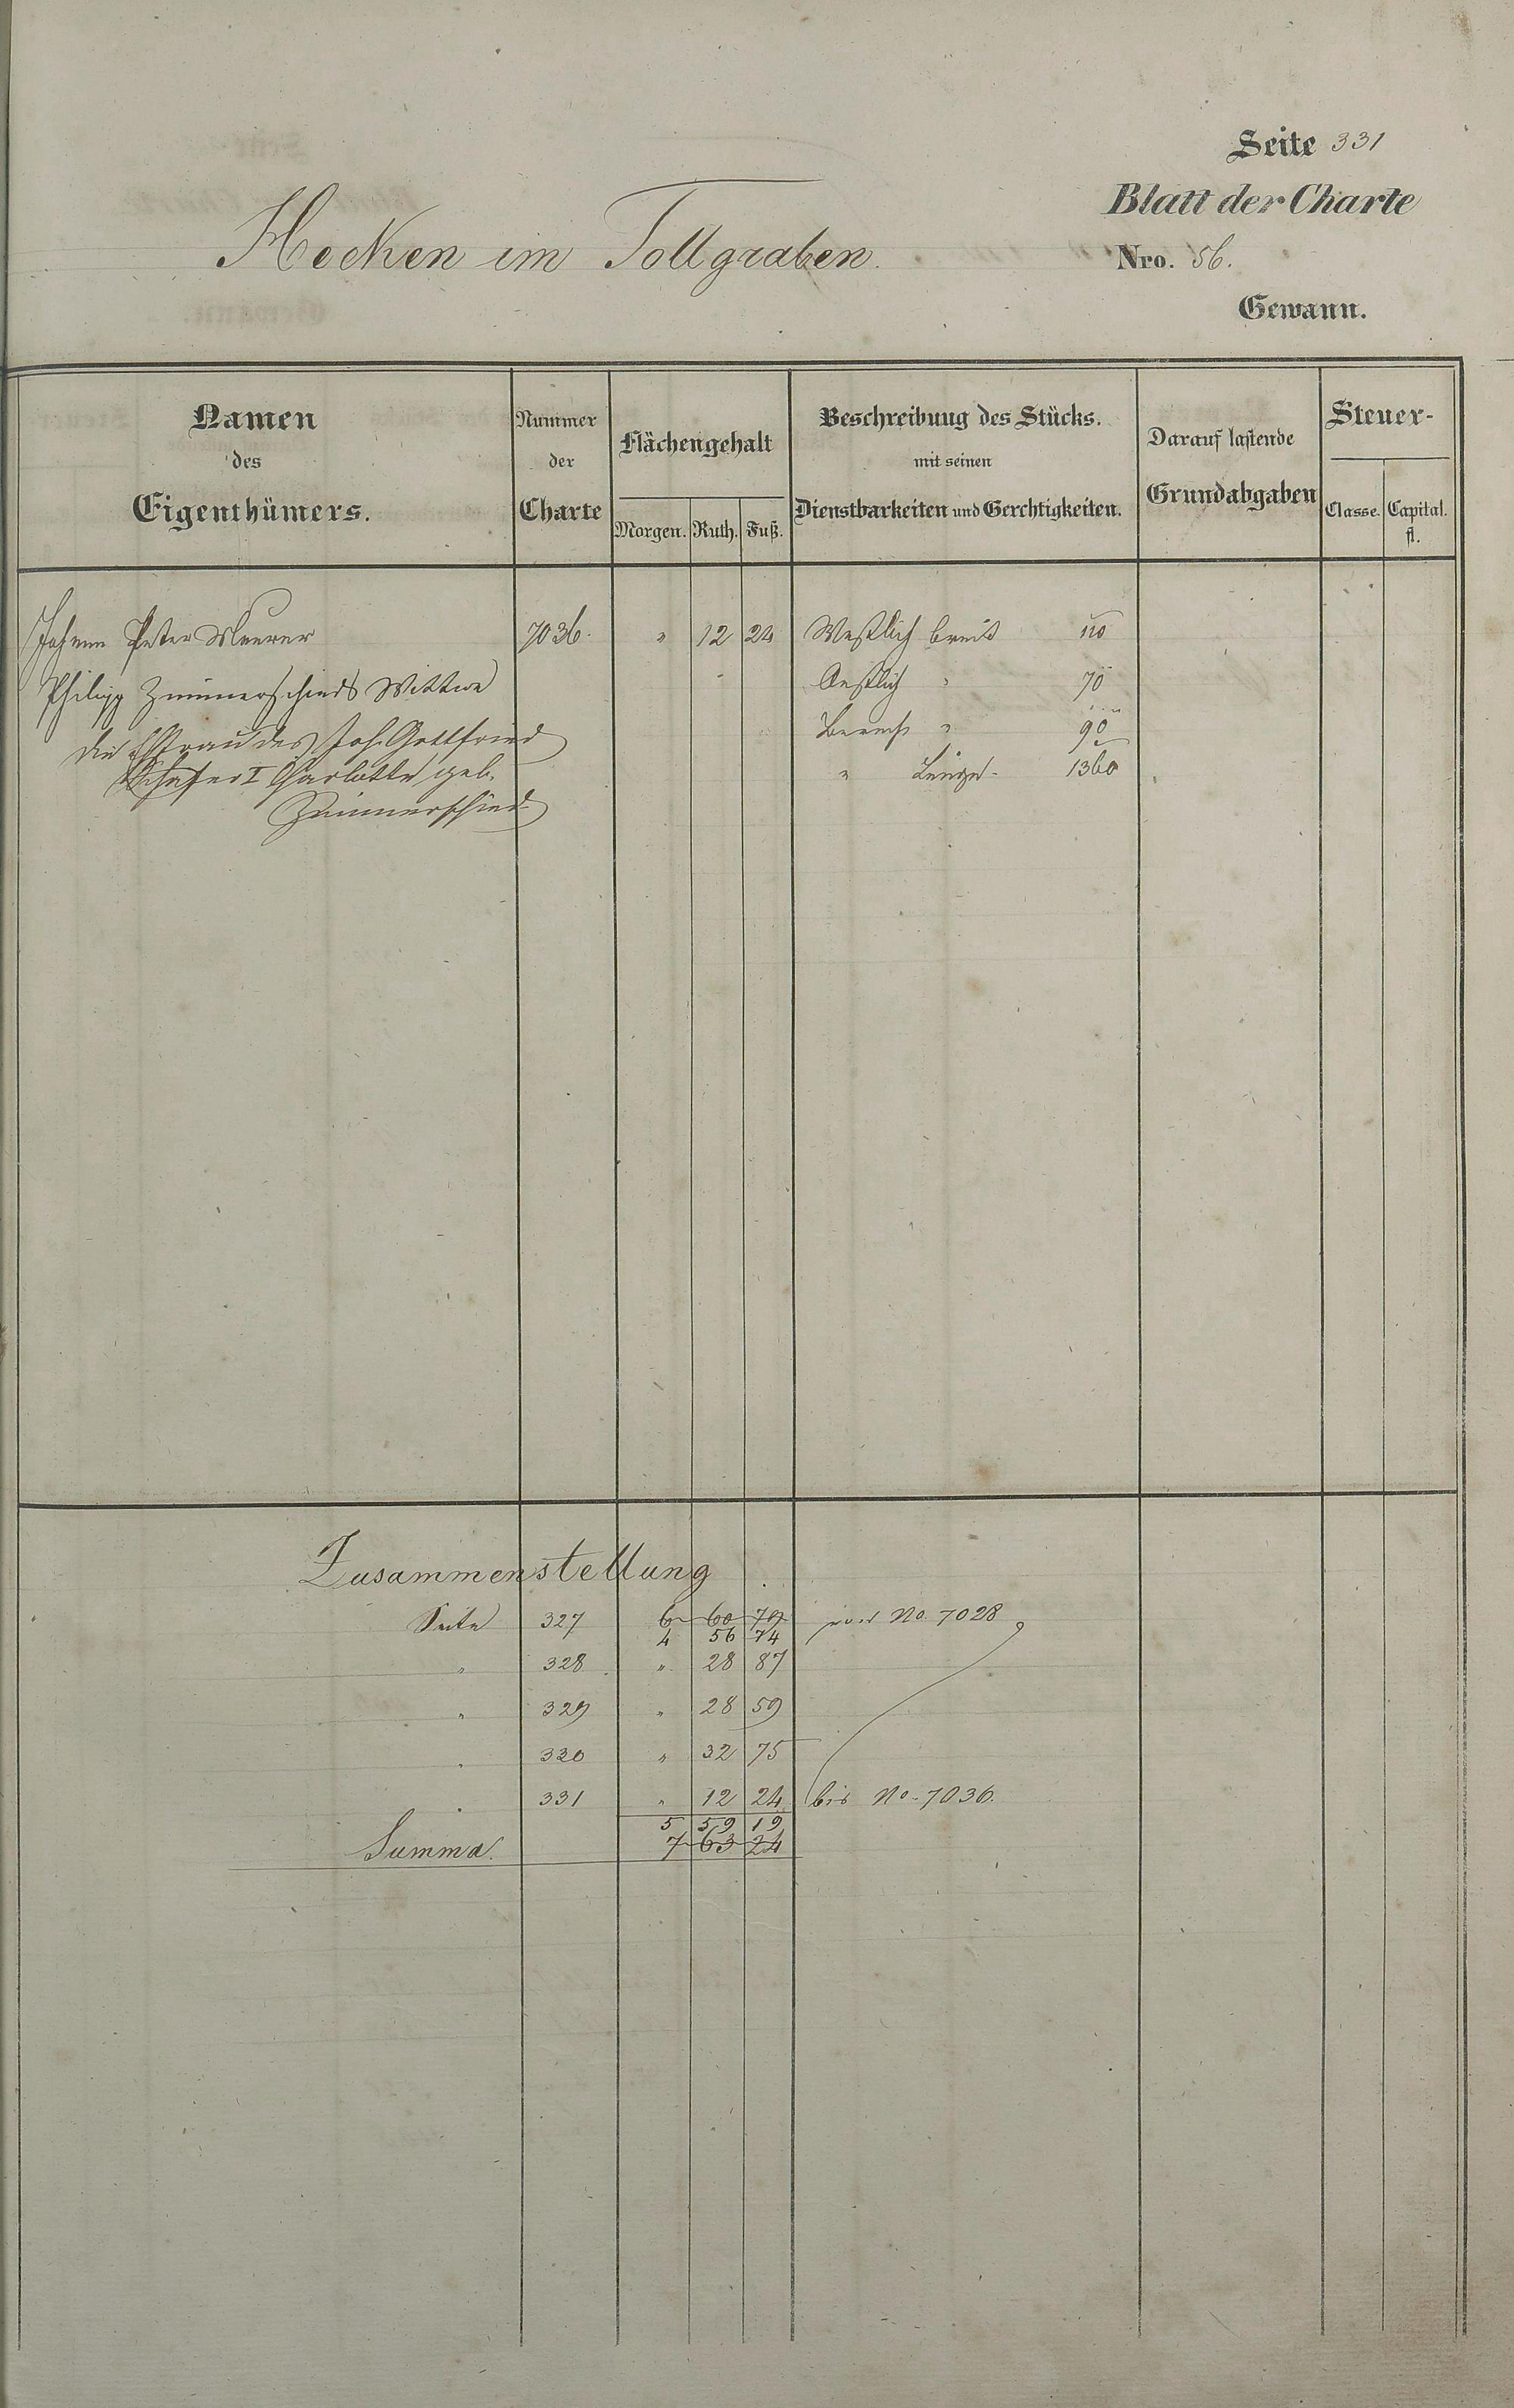 Seite 331
Blatt der Charte
Hecken im Tollgraben.
Nro. 56.
Gewann.
Namen des Eigenthümers.
Nummer der Charte
Flächengehalt
Morgen. Ruth. Fuß.
Beschreibung des Stücks.
mit seinen
Dienstbarkeiten und Gerechtigkeiten.
Darauf lastende
Grundabgaben
Steuer-
Classe. Capital.
fl.
Johann Peter Maurer 7036. " 12 24 Westlich breit 110
Philipp Zimmerschieds Wittwe Oestlich " 70
die Ehfrau des Joh. Gottfried Berech " 90
Schäfer I Charlotte geb. " Länge - 1360
Zimmerschied
Zusammenstellung
Seite 327 6 60 79 von No. 7028
4 56 74
" 328 " 28 87
" 329 " 28 59
" 330 " 32 75
" 331 " 12 24 bis No. 7036.
5 59 19
Summa. 7 63 24